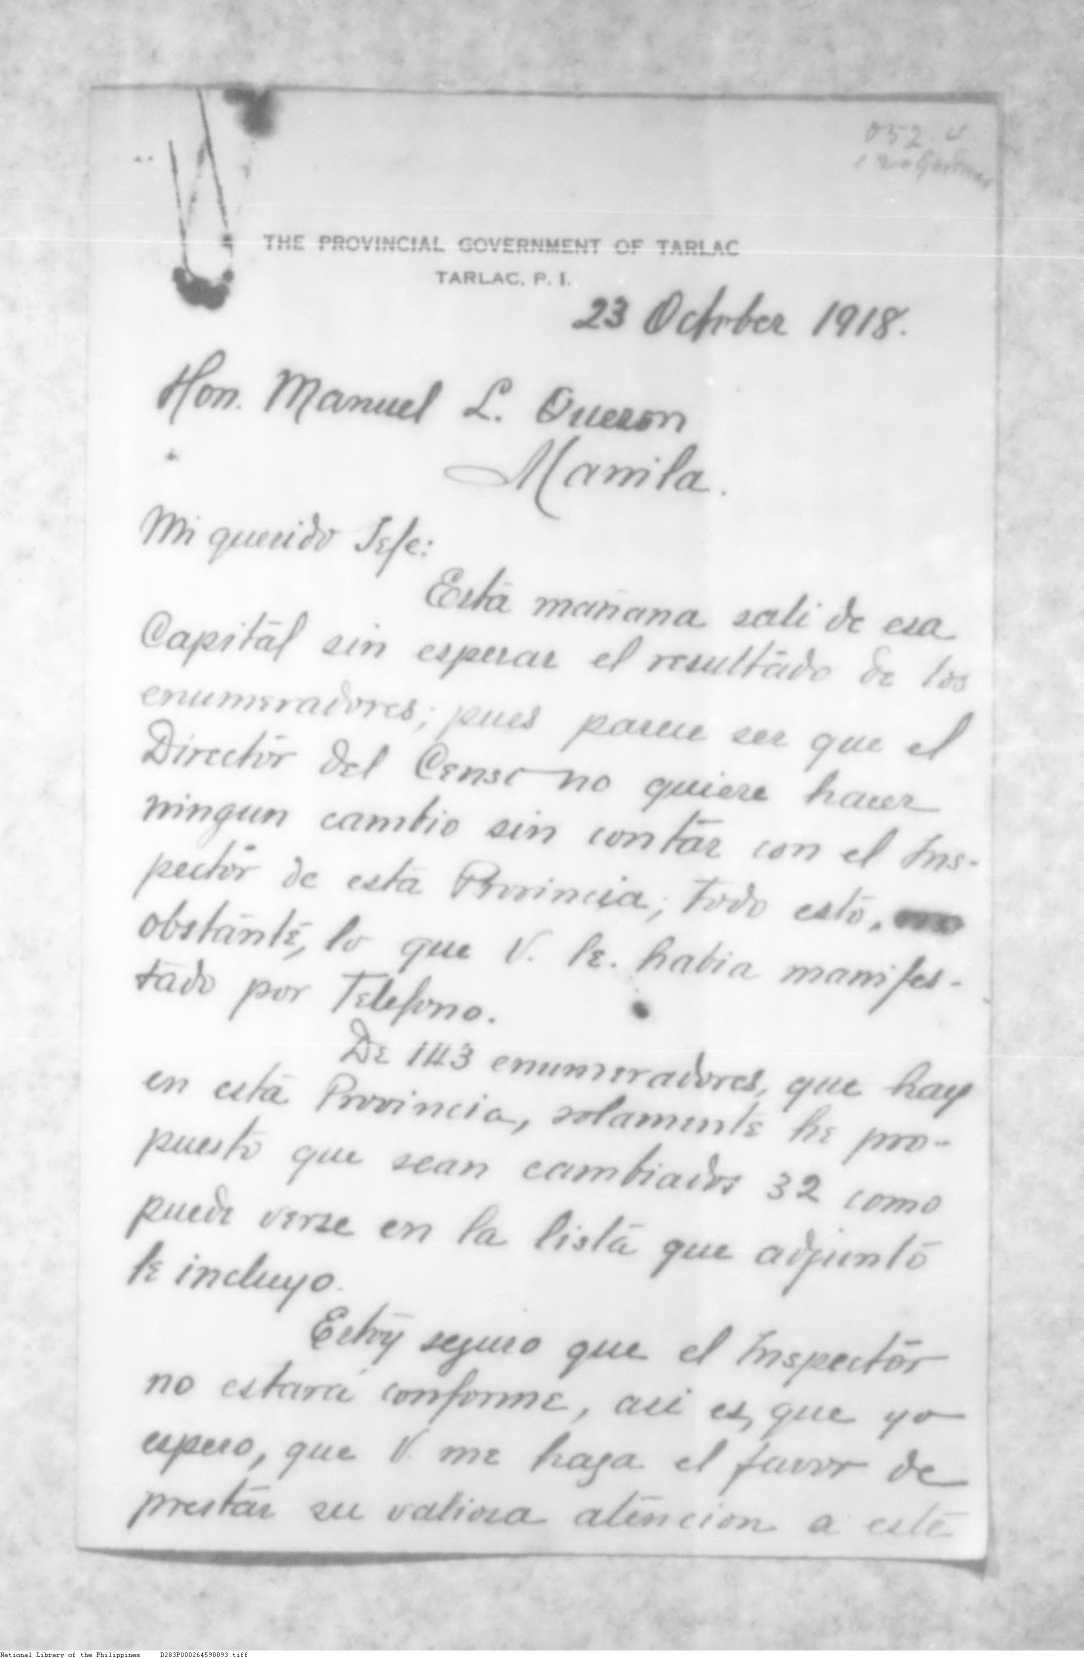 052
THE PROVINCIAL GOVERNMENT OF TARLAC
TARLAC, P. I.
23 October 1918.
Hon. Manuel L. Quezon
Manila.
Mi querido Jefe:
Está mañana sali de esa
Capitál sin esperar el resultádo de los
enumeradores; pues parece ser que el
Directór del Censo no quiere hacer
ningun cambio sin contár con el Ins-
pectór de está Provincia; todo estó, no
obstánté, lo que V. le. habia manifes-
tádo por Telefono.
De 143 enumeradores, que hay
en está Provincia, solamenté he pro-
puestó que sean cambiados 32 como
puede verse en la listá que adjuntó
le incluyo.
Estóy seguro que el Inspectór
no estará conforme, asi es, que yo
espero, que V. me haga el favor de
prestár su valiosa aténcion a esté
National Library of the Philippines D283P000264598093.tiff